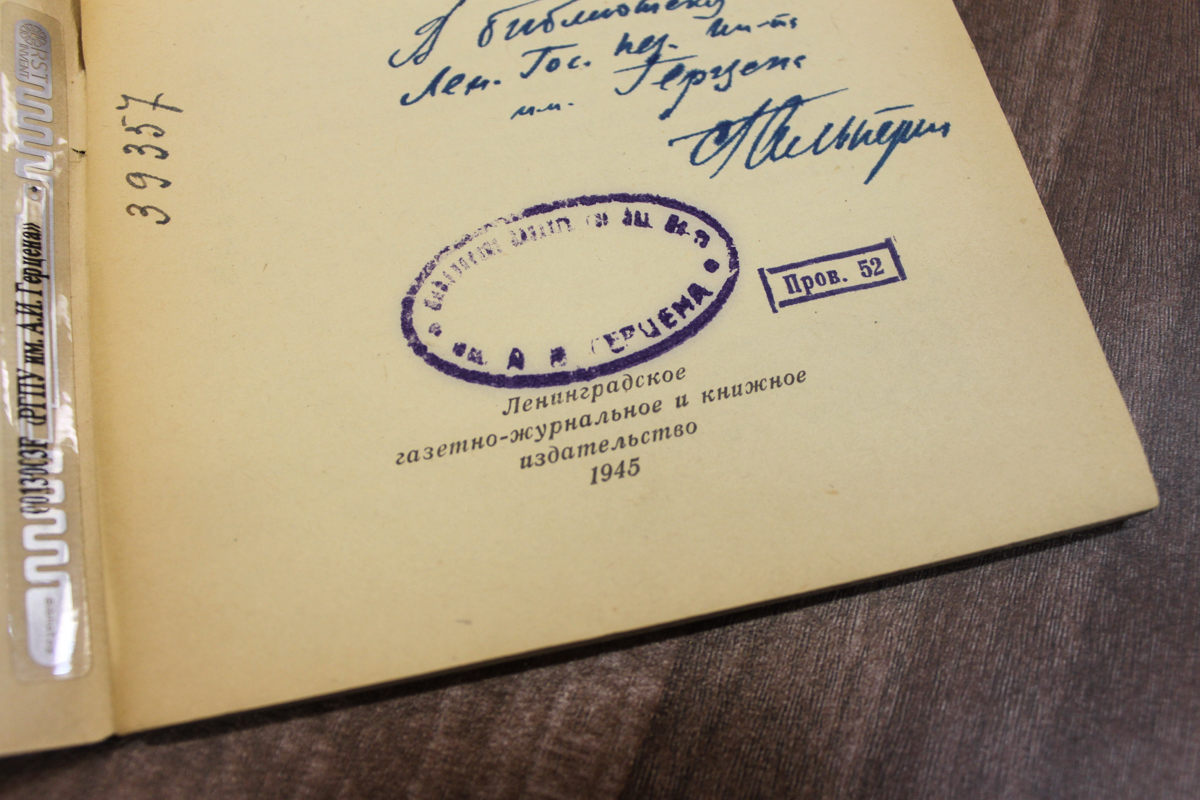 В библиотеку
Лен. Гос. пед. ин-та
им. Герцена
39357
ГЕРЦЕНА
Пров. 52
Ленинградское
газетно-журнальное и книжное
издательство
1945
«РГПУ им. А.И. Герцена»